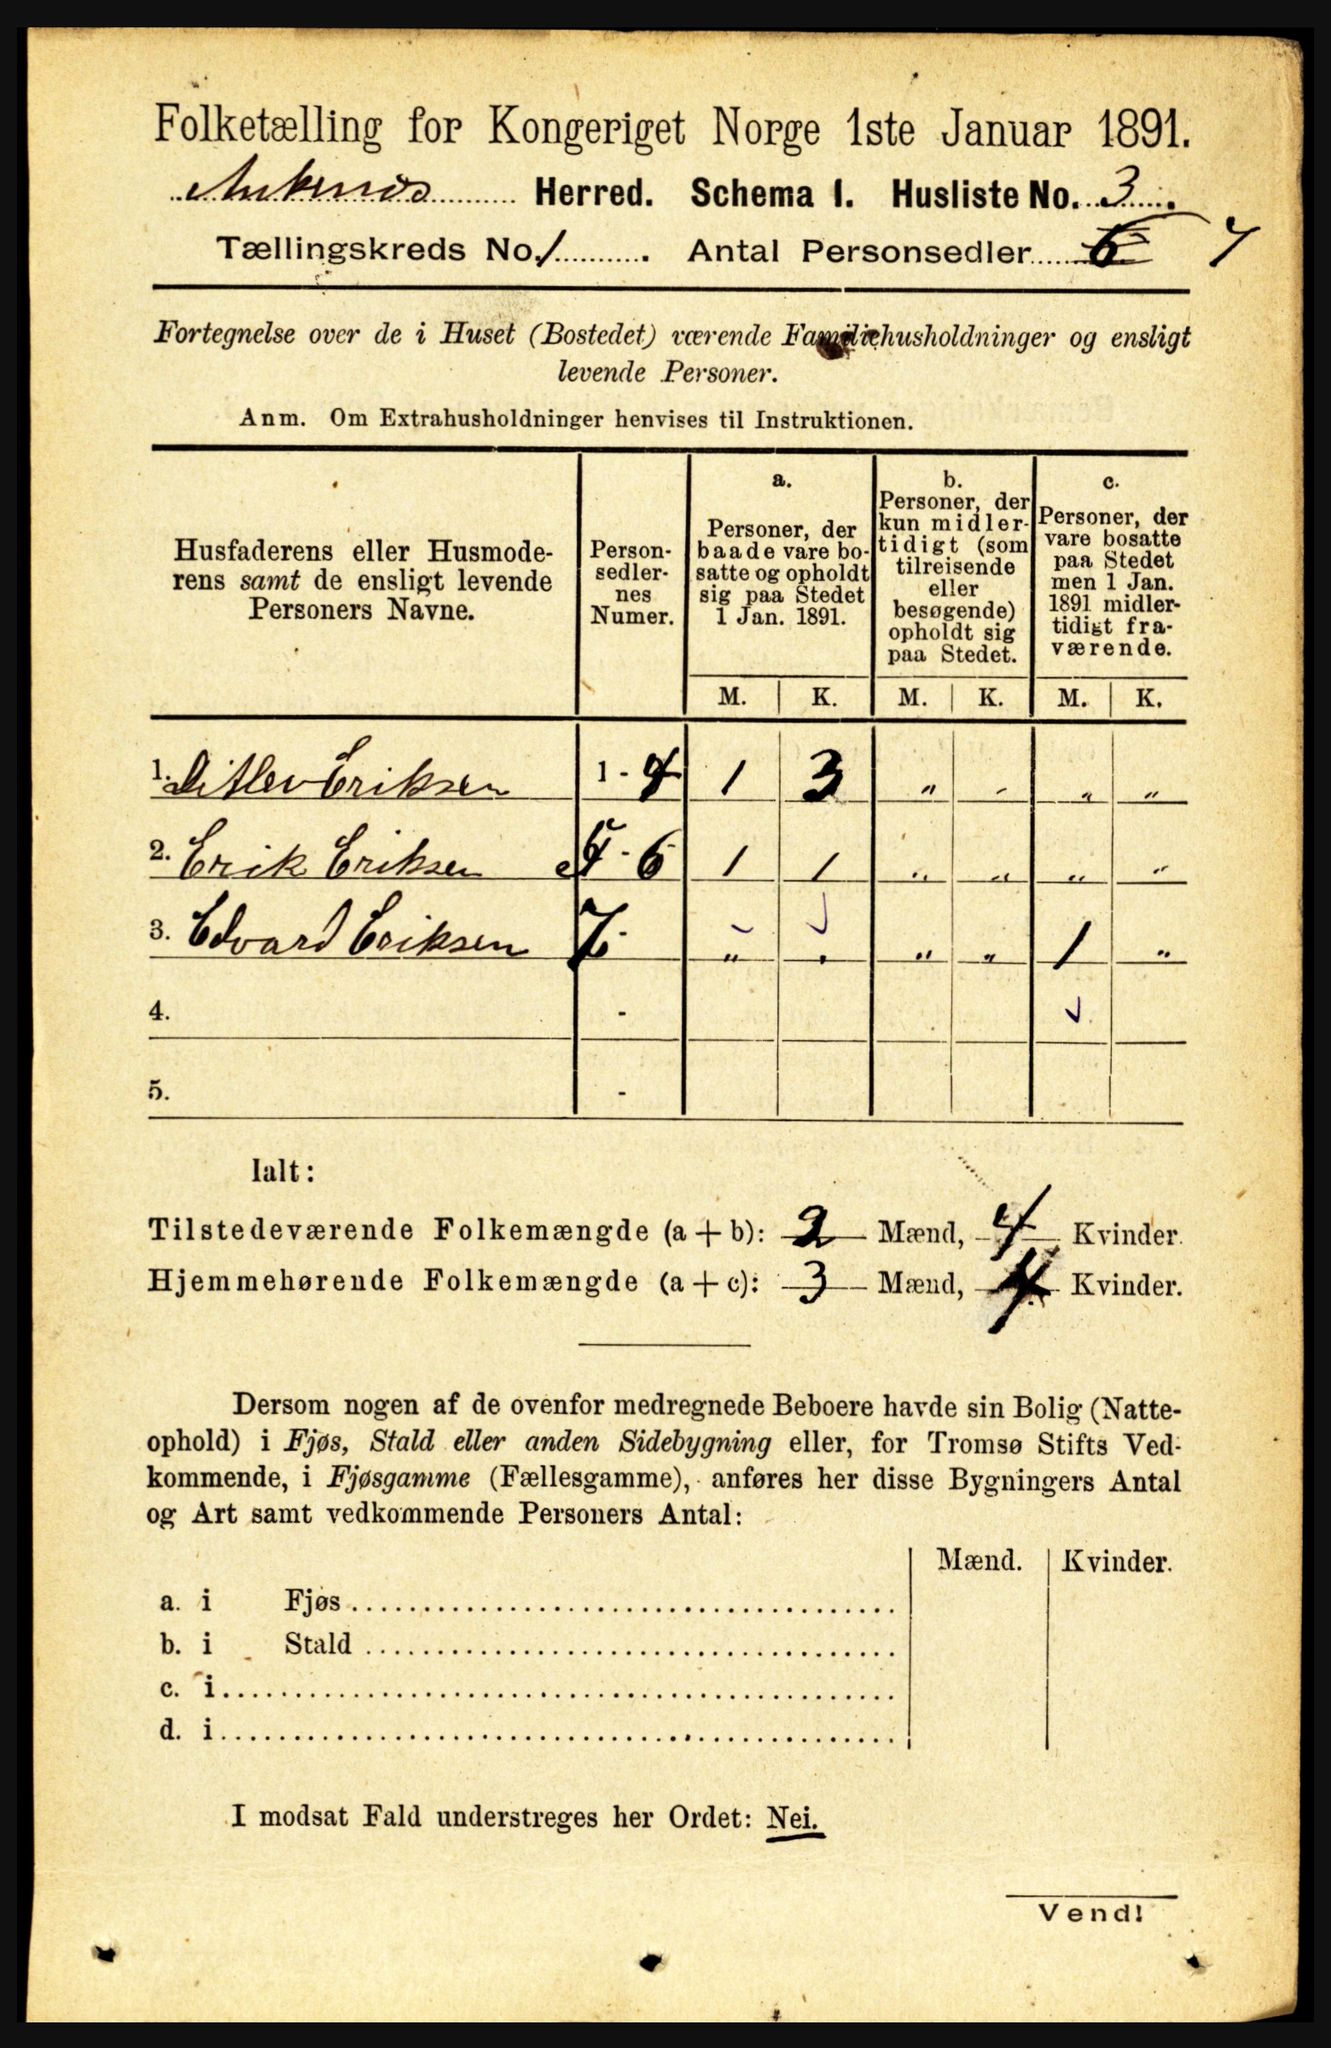 Folketælling for Kongeriget Norge 1ste Januar 1891.
Ankenæs Herred. Schema I. Husliste No. 3.
Tællingskreds No. 1. Antal Personsedler 6 7
Fortegnelse over de i Huset (Bostedet) værende Familiehusholdninger og ensligt
levende Personer.
Anm. Om Extrahusholdninger henvises til Instruktionen.
Husfaderens eller Husmode-
rens samt de ensligt levende
Personers Navne.
Person-
sedler-
nes
Numer.
a.
Personer, der
baade vare bo-
satte og opholdt
sig paa Stedet
1 Jan. 1891.
b.
Personer, der
kun midler-
tidigt (som
tilreisende
eller
besøgende)
opholdt sig
paa Stedet.
c.
Personer, der
vare bosatte
paa Stedet
men 1 Jan.
1891 midler-
tidigt fra-
værende.
M. K. M. K. M. K.
1. Ditlev Eriksen 1 - 4 1 3 " " " "
2. Erik Eriksen 5 - 6 1 1 " " " "
3. Edvard Eriksen 7 - " " " " 1 "
4. -
5. -
Ialt:
Tilstedeværende Folkemængde (a + b): 2 Mænd, 4 Kvinder.
Hjemmehørende Folkemængde (a + c): 3 Mænd, 4 Kvinder.
Dersom nogen af de ovenfor medregnede Beboere havde sin Bolig (Natte-
ophold) i Fjøs, Stald eller anden Sidebygning eller, for Tromsø Stifts Ved-
kommende, i Fjøsgamme (Fællesgamme), anføres her disse Bygningers Antal
og Art samt vedkommende Personers Antal:
Mænd. Kvinder.
a. i Fjøs
b. i Stald
c. i
d. i
I modsat Fald understreges her Ordet: Nei.
Vend!